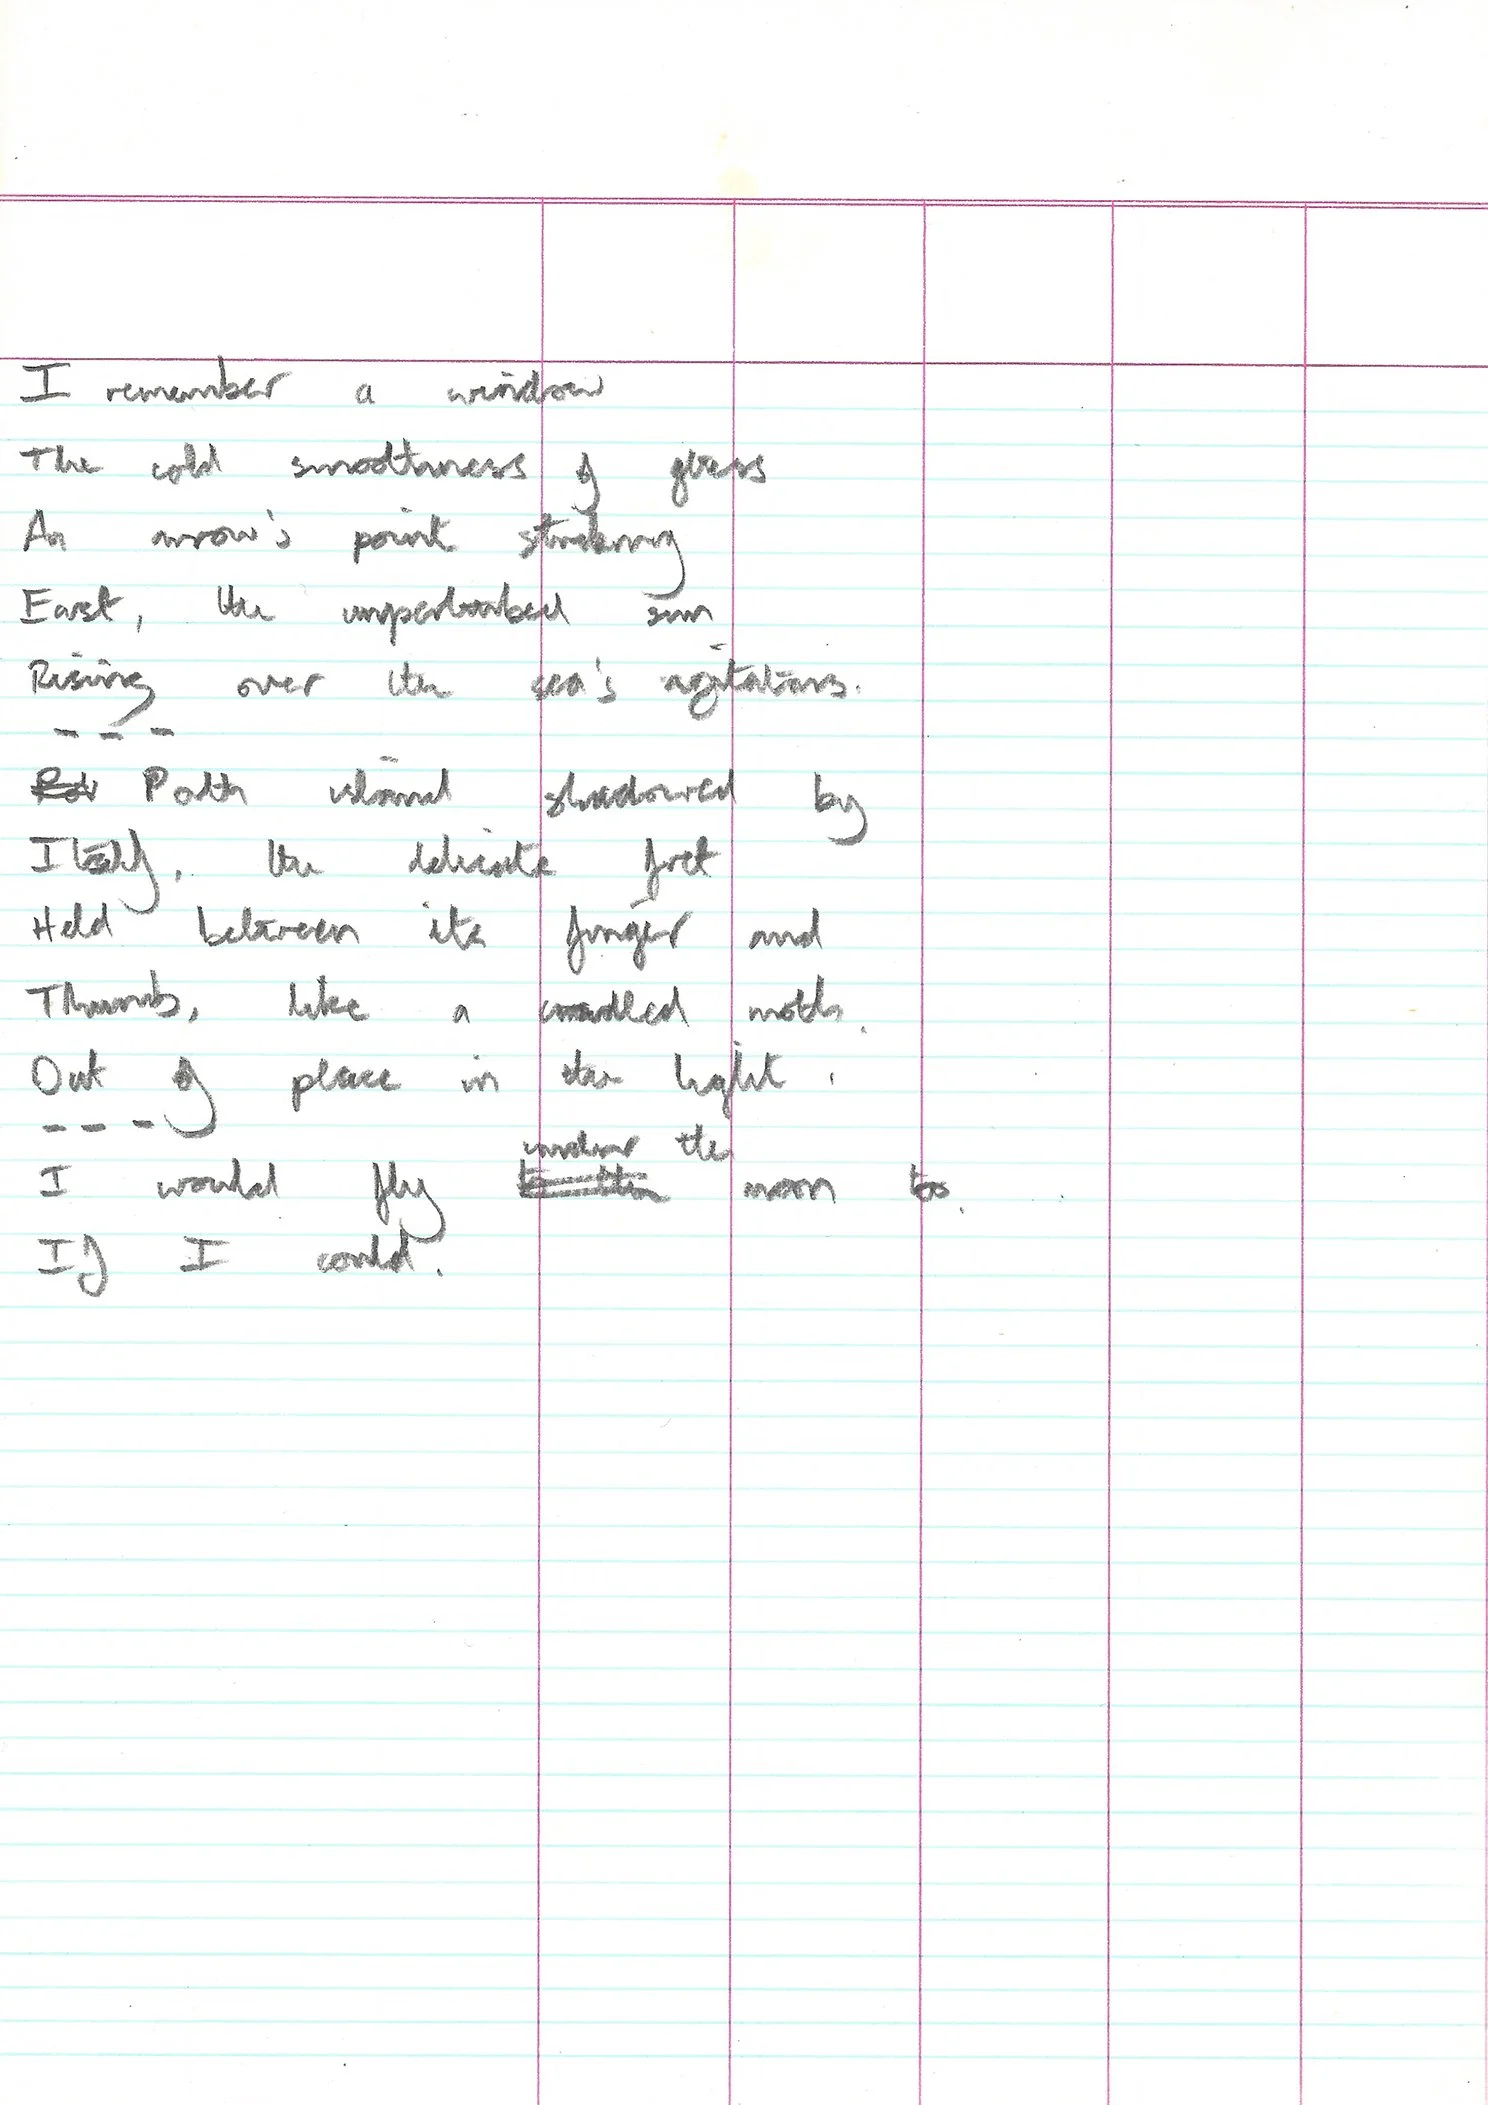 I remember a window
The cold smoothness of glass
An arrow's point striking
East, the unperturbed sun
Rising over the sea's agitations.
---
Path island shadowed by
Itself, the delicate fret
Held between its finger and
Thumb, like a cradled moth,
Out of place in the light.
---
under the
I would fly moon too,
If I could.